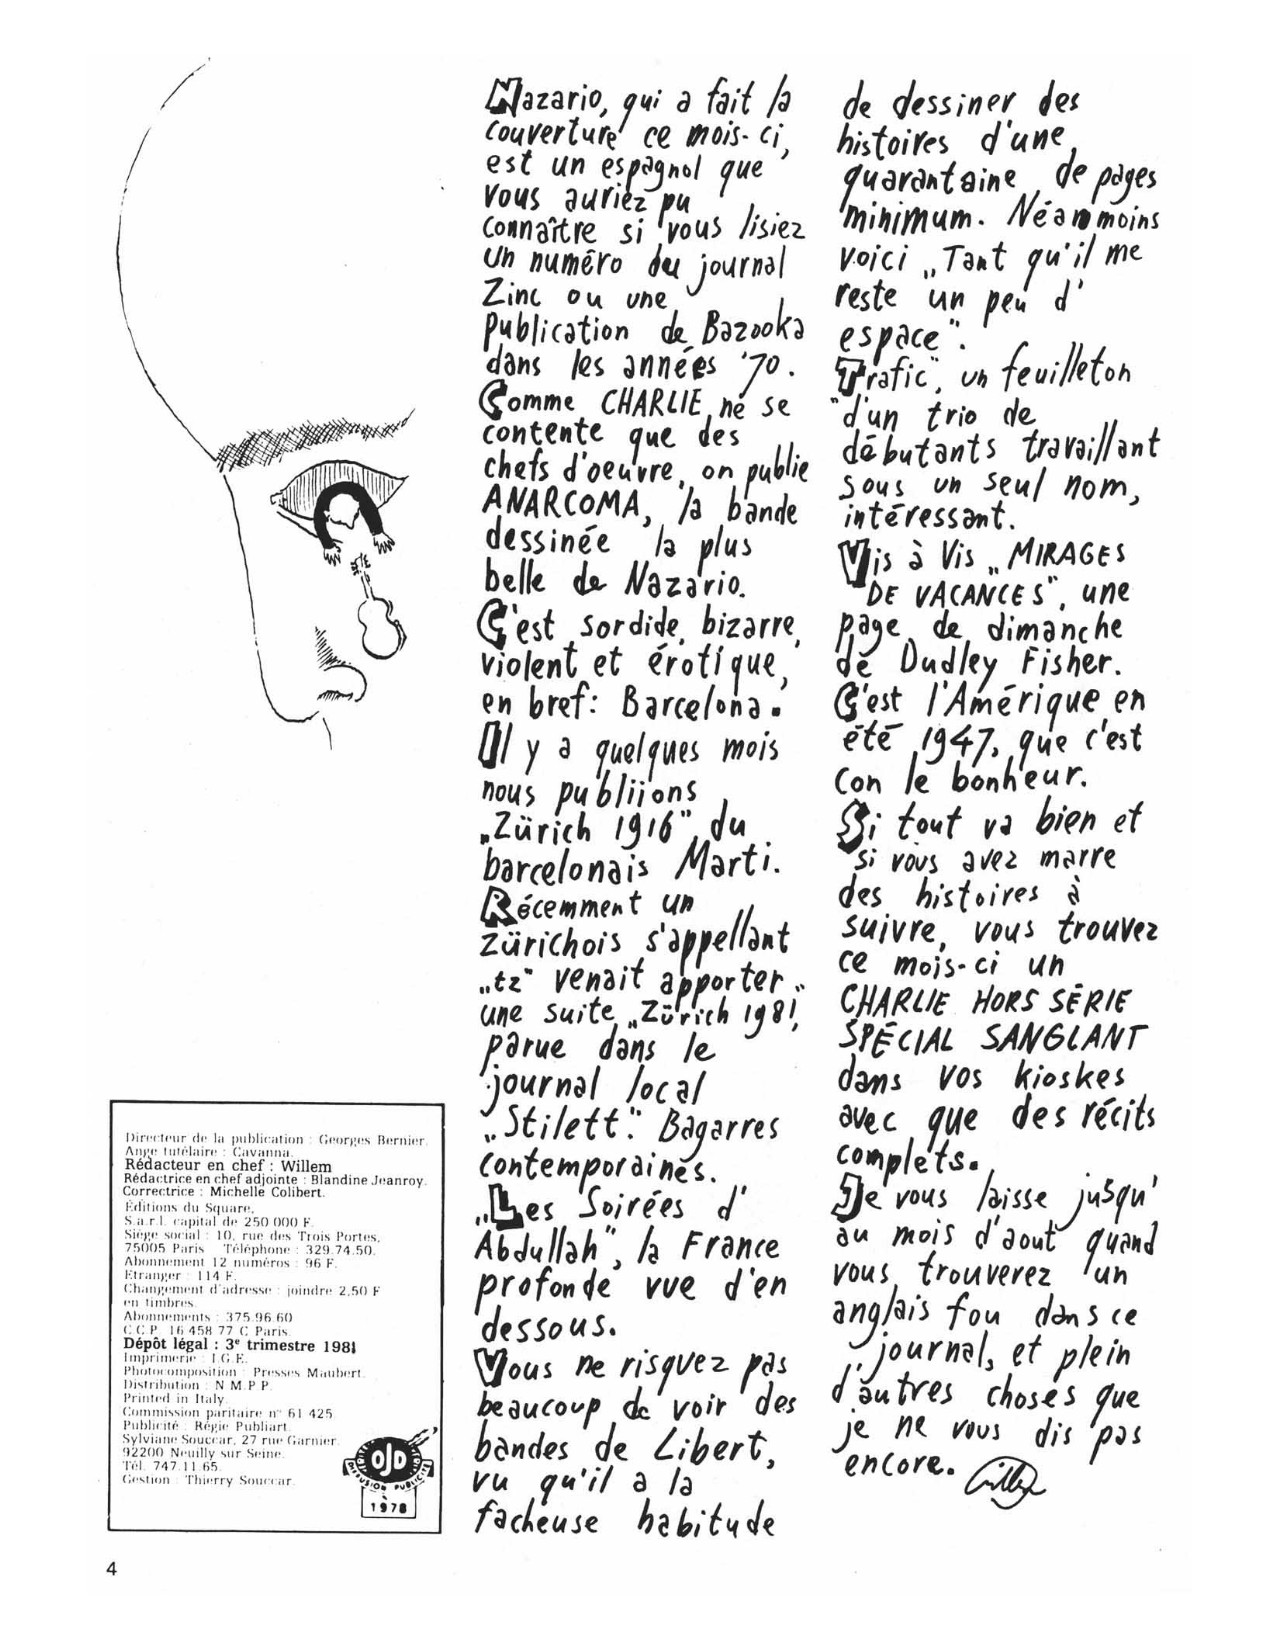 Nazario, qui a fait la
couverture ce mois-ci,
est un espagnol que
vous auriez pu
connaître si vous lisiez
un numéro du journal
Zinc ou une
publication de Bazooka
dans les années '70.
Comme CHARLIE ne se
contente que des
chefs d'oeuvre, on publie
ANARCOMA, la bande
dessinée la plus
belle de Nazario.
C'est sordide, bizarre,
violent et érotique,
en bref: Barcelona.
Il y a quelques mois
nous publiions
„Zürich 1916", du
barcelonais Marti.
Récemment un
zürichois s'appellant
„tz" venait apporter
une suite „Zürich 1981",
parue dans le
journal local
„Stilett". Bagarres
contemporaines.
„Les Soirées d'
Abdullah", la France
profonde vue d'en
dessous.
Vous ne risquez pas
beaucoup de voir des
bandes de Libert,
vu qu'il a la
facheuse habitude
de dessiner des
histoires d'une
quarantaine de pages
minimum. Néanmoins
voici „Tant qu'il me
reste un peu d'
espace".
„Trafic", un feuilleton
d'un trio de
débutants travaillant
sous un seul nom,
intéressant.
Vis à Vis „MIRAGES
DE VACANCES", une
page de dimanche
de Dudley Fisher.
C'est l'Amérique en
été 1947, que c'est
con le bonheur.
Si tout va bien et
si vous avez marre
des histoires à
suivre, vous trouvez
ce mois-ci un
CHARLIE HORS SÉRIE
SPÉCIAL SANGLANT
dans vos kioskes
avec que des récits
complets.
Je vous laisse jusqu'
au mois d'aout quand
vous trouverez un
anglais fou dans ce
journal, et plein
d'autres choses que
je ne vous dis pas
encore. Willem
Directeur de la publication : Georges Bernier.
Ange tutélaire : Cavanna.
Rédacteur en chef : Willem
Rédactrice en chef adjointe : Blandine Jeanroy.
Correctrice : Michelle Colibert.
Éditions du Square,
S.a.r.l. capital de 250 000 F.
Siège social : 10, rue des Trois Portes,
75005 Paris Téléphone : 329.74.50.
Abonnement 12 numéros : 96 F.
Étranger : 114 F.
Changement d'adresse : joindre 2,50 F
en timbres.
Abonnements : 375.96.60
C.C.P. 16 458 77 C Paris.
Dépôt légal : 3e trimestre 1981
Imprimerie : I.G.E.
Photocomposition : Presses Maubert.
Distribution : N.M.P.P.
Printed in Italy.
Commission paritaire n° 61 425
Publicité : Régie Publiart.
Sylviane Souccar, 27 rue Garnier.
92200 Neuilly sur Seine.
Tél. 747.11.65.
Gestion : Thierry Souccar.
OJD
DIFFUSION PUBLICITÉ
à
1978
4